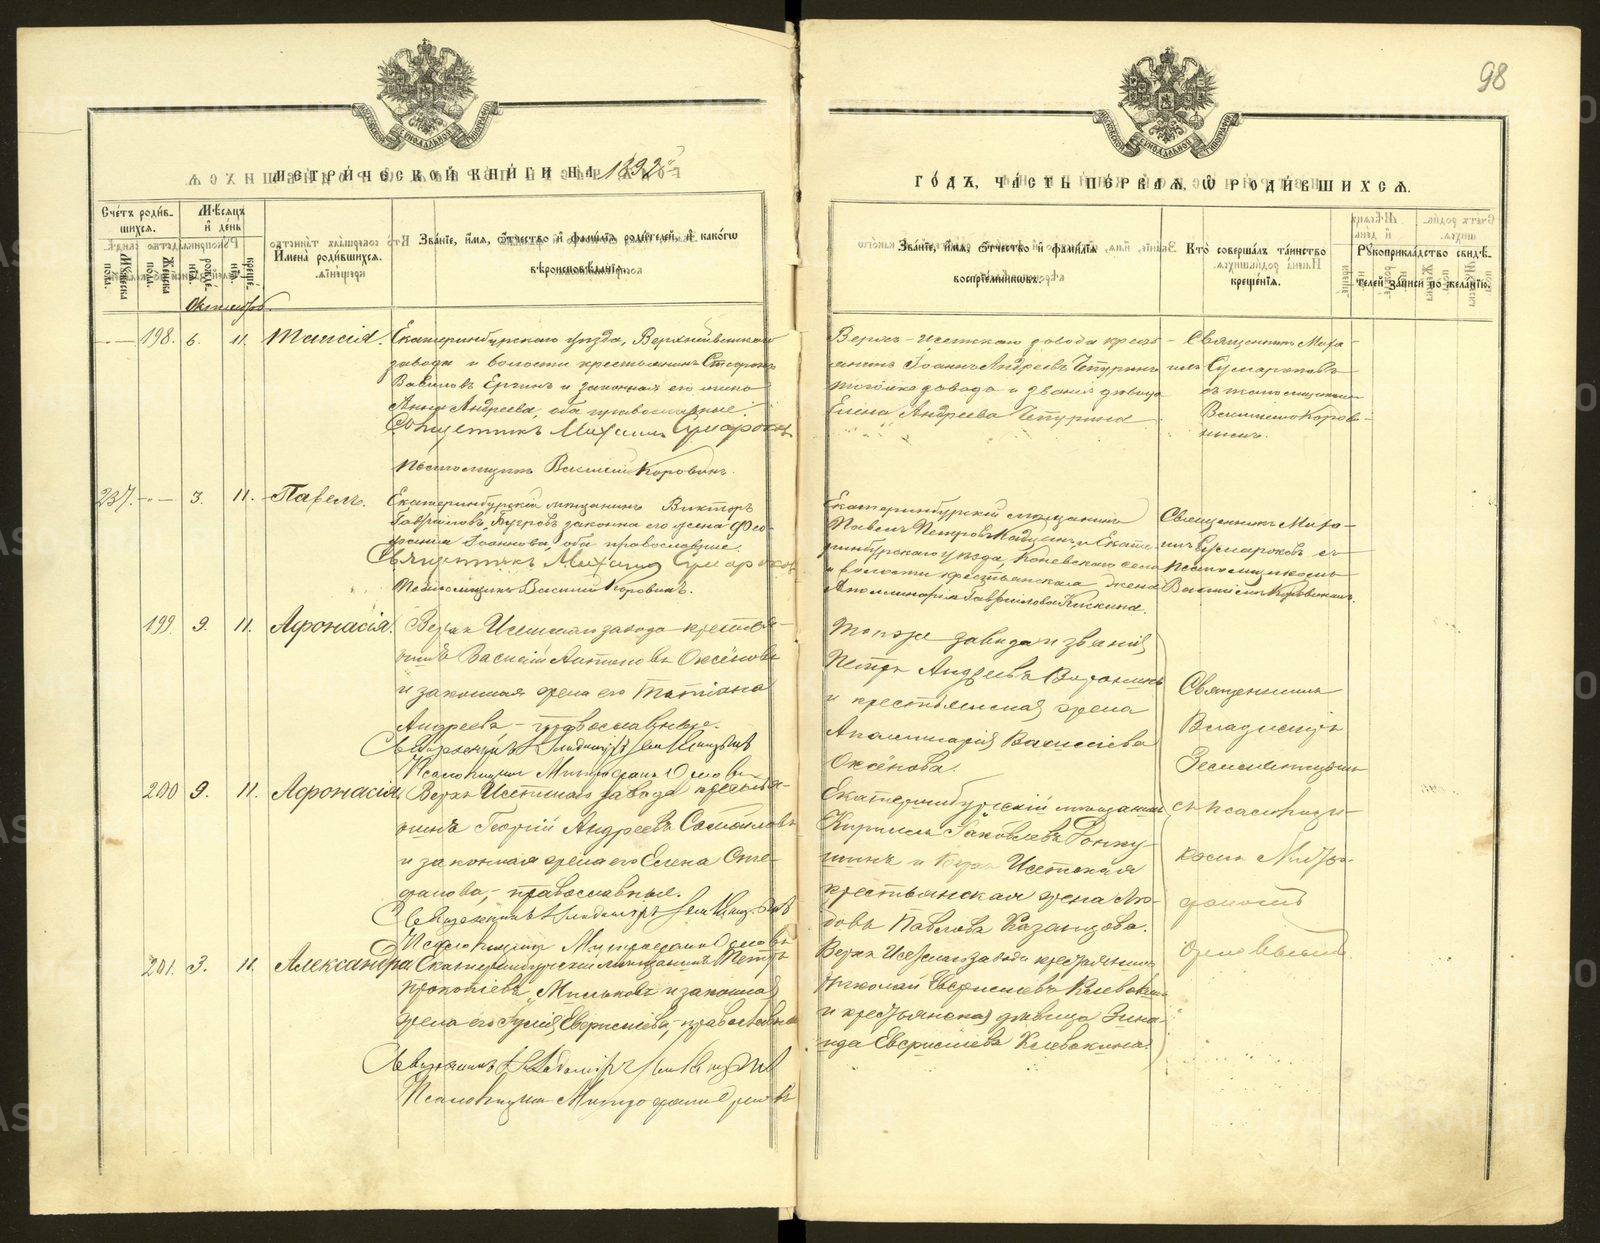 98
МЕТРИЧЕСКОЙ КНИГИ НА 1892й
ГОДЪ, ЧАСТЬ ПЕРВАЯ, Ѡ РОДИВШИХСЯ.
Счетъ родив-
шихся.
Мѣсяцъ
и день
Имена родившихся.
Званіе, имя, отчество и фамилія родителей, и какого
вѣроисповѣданія.
Мужеска пола.
Женска пола.
рожде-
нія.
креще-
нія.
Званіе, имя, отчество и фамилія
воспріемниковъ.
Кто совершалъ таинство
крещенія.
Рукоприкладство свидѣ-
телей записи по желанію.
Октябрь.
198. 6. 11. Таисія.
Екатеринбургскаго уѣзда, Верхнейвинскаго
завода и волости крестьянинъ Стефанъ
Вавиловъ и законная его жена
Анна Андреева, оба православные.
Священникъ Михаилъ Сумароковъ
Псаломщикъ Василій Коровинъ.
Верхъ-Исетскаго завода кресть-
янинъ Іоаннъ Андреевъ Чепуринъ и
тогоже завода и званія дѣвица
Елена Андреева Чепурина
Священникъ Миха-
илъ Сумароковъ
съ псаломщикомъ
Василіемъ Коров-
нымъ.
237. 3. 11. Павелъ.
Екатеринбургскій мѣщанинъ Викторъ
Гавриловъ законная его жена Фео-
фанія Іоаннова, оба православные.
Священникъ Михаилъ Сумароковъ
Псаломщикъ Василій Коровинъ.
Екатеринбургскій мѣщанинъ
Павелъ Петровъ и Екате-
ринбургскаго уѣзда, Коневскаго села
и волости крестьянская жена
Аполлинарія Гаврилова
Священникъ Миха-
илъ Сумароковъ съ
псаломщикомъ
Василіемъ Коровинымъ.
199. 9. 11. Афонасія.
Верхъ Исетскаго завода крестья-
нинъ Василій Антоновъ Оксёновъ
и законная жена его Татіана
Андреева – православные.
Священникъ Владиміръ Земляницынъ
Псаломщикъ Митрофанъ Орловъ
Тогоже завода и званія
Петръ Андреевъ Воронинъ
и крестьянская жена
Аполлинарія Василіева
Оксёнова.
Священникъ
Владиміръ
Земляницынъ
съ псаломщи-
комъ Митро-
фаномъ
Орловымъ
200 9. 11. Афонасія
Верхъ Исетскаго завода крестья-
нинъ Георгій Андреевъ Самойловъ
и законная жена его Елена Сте-
фанова, – православные.
Священникъ Владиміръ Земляницынъ
Псаломщикъ Митрофанъ Орловъ
Екатеринбургскій мѣщанинъ
Кириллъ Іаковлевъ
и Верхъ Исетская
крестьянская жена Лю-
бовь Павлова Казанцова.
201. 3. 11. Александра
Екатеринбургскій мѣщанинъ Петръ
Прокопіевъ Мыльковъ и законная
жена его Юлія Евгрисиева, – православные
Священникъ Владиміръ Земляницынъ
Псаломщикъ Митрофанъ Орловъ
Верхъ Исетскаго завода крестьянинъ
Николай Клевакинъ
и крестьянская дѣвица Зина-
ида Клевакина.